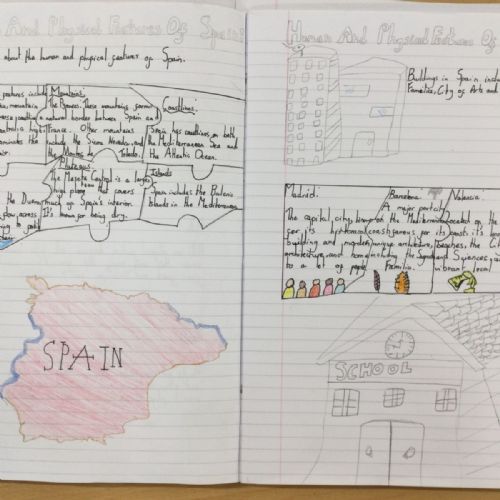 And Physical Features Of Spain
about the human and physical features of Spain.
features include
Mountains
The Pyrenees. These mountains form
a natural border between Spain and
France. Other mountains
include the Sierra Nevada, and
the Montes Toledo.
Coastlines:
Spain has coastlines on both
the Mediterranean Sea and
the Atlantic Ocean.
Plateaus
The Meseta Central is a large
high plateau that covers
much of Spain's interior.
It's known for being dry.
Islands
Spain includes the Balearic
Islands in the Mediterranean
SPAIN
Human And Physical Features Of
Buildings in Spain
Familia, City of Arts and
Madrid:
The capital city, known
for its historical
building and modern
architecture, and home
to a lot of people
Barcelona
A major port city
on the Mediterranean
coast, famous for its
unique architecture,
including the Sagrada
Familia.
Valencia
Located on the
coast, it's
beaches, the City
Sciences,
vibrant local
SCHOOL